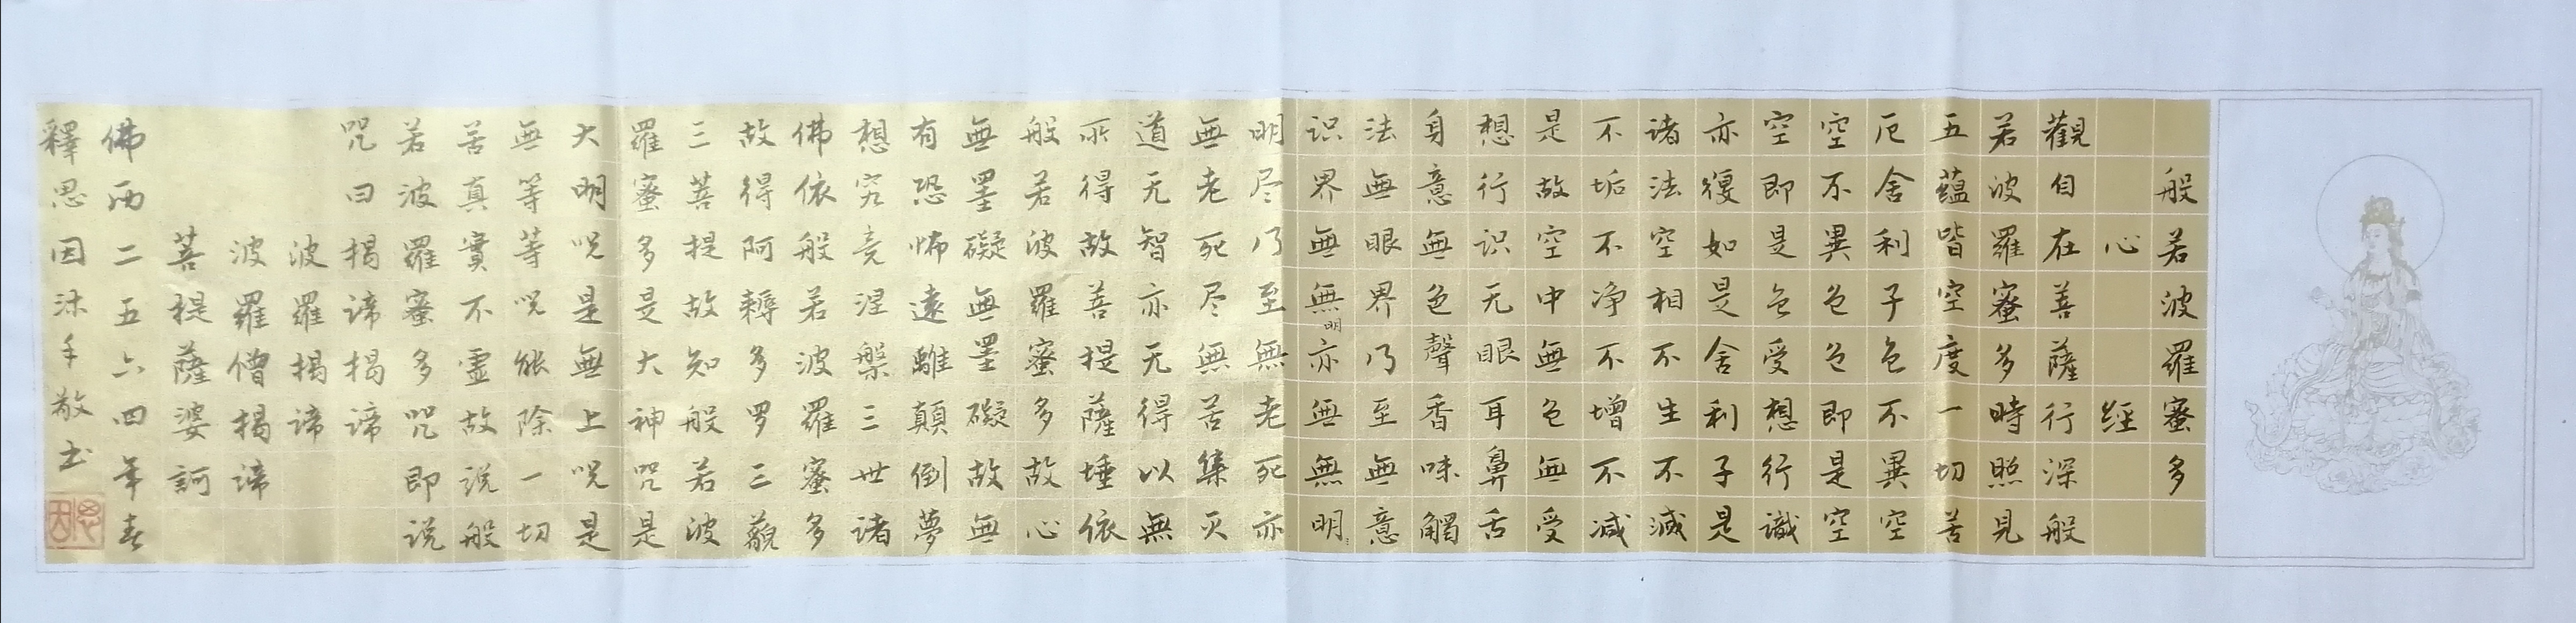 般若波羅蜜多
心經
觀自在菩薩行深般
若波羅蜜多時照見
五蘊皆空度一切苦
厄舍利子色不異空
空不異色色即是空
空即是色受想行識
亦復如是舍利子是
諸法空相不生不滅
不垢不净不增不減
是故空中無色無受
想行识无眼耳鼻舌
身意無色聲香味觸
法無眼界乃至無意
识界無無明亦無無明
明尽乃至無老死亦
無老死尽無苦集灭
道无智亦无得以無
所得故菩提薩埵依
般若波羅蜜多故心
無罣礙無罣礙故無
有恐怖遠離顛倒夢
想究竟涅槃三世諸
佛依般若波羅蜜多
故得阿耨多罗三藐
三菩提故知般若波
羅蜜多是大神咒是
大明咒是無上咒是
無等等咒能除一切
苦真實不虛故说般
若波羅蜜多咒即说
咒曰揭諦揭諦
波羅揭諦
波羅僧揭諦
菩提薩婆訶
佛二五六四年春
釋思因沐手敬书
思因